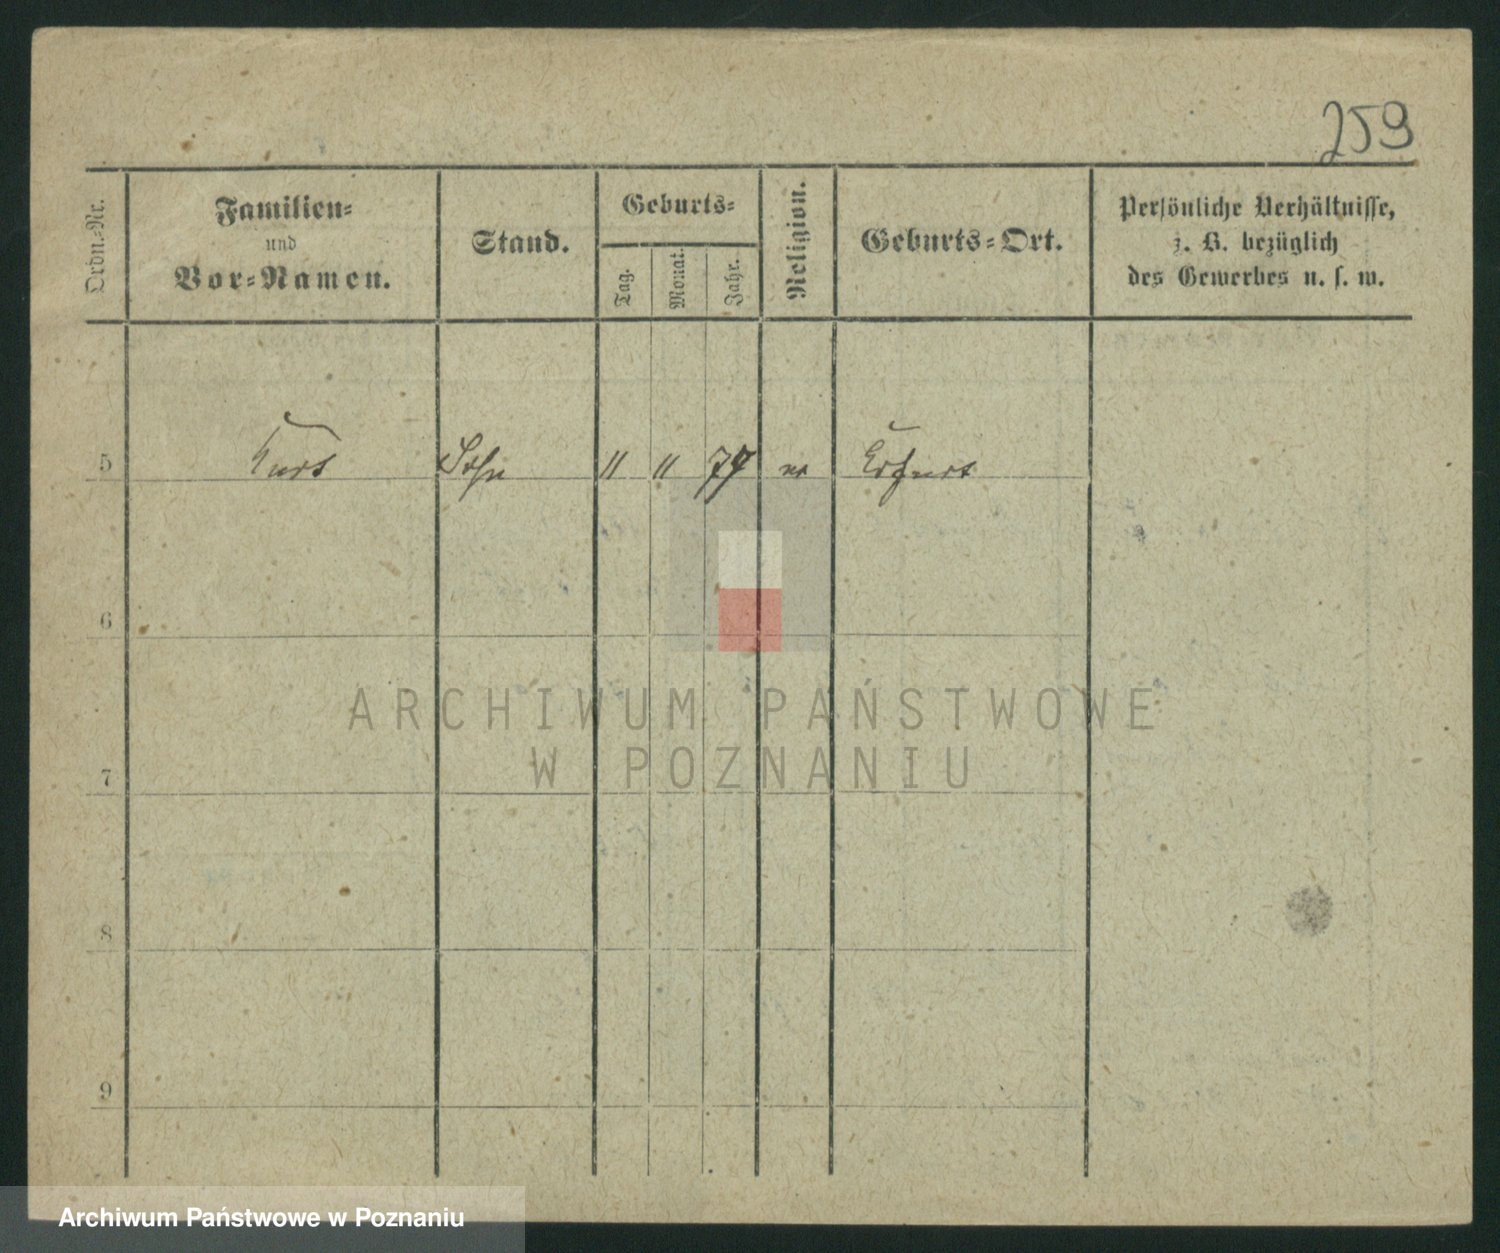 259
Ordn.-Nr.
Familien-
und
Vor-Namen.
Stand.
Geburts-
Tag.
Monat.
Jahr.
Religion.
Geburts-Ort.
Persönliche Verhältnisse,
z. B. bezüglich
des Gewerbes u. s. w.
5 Kurt Sohn " " 79 ev Erfurt
6
7
8
9
ARCHIWUM PAŃSTWOWE
W POZNANIU
Archiwum Państwowe w Poznaniu